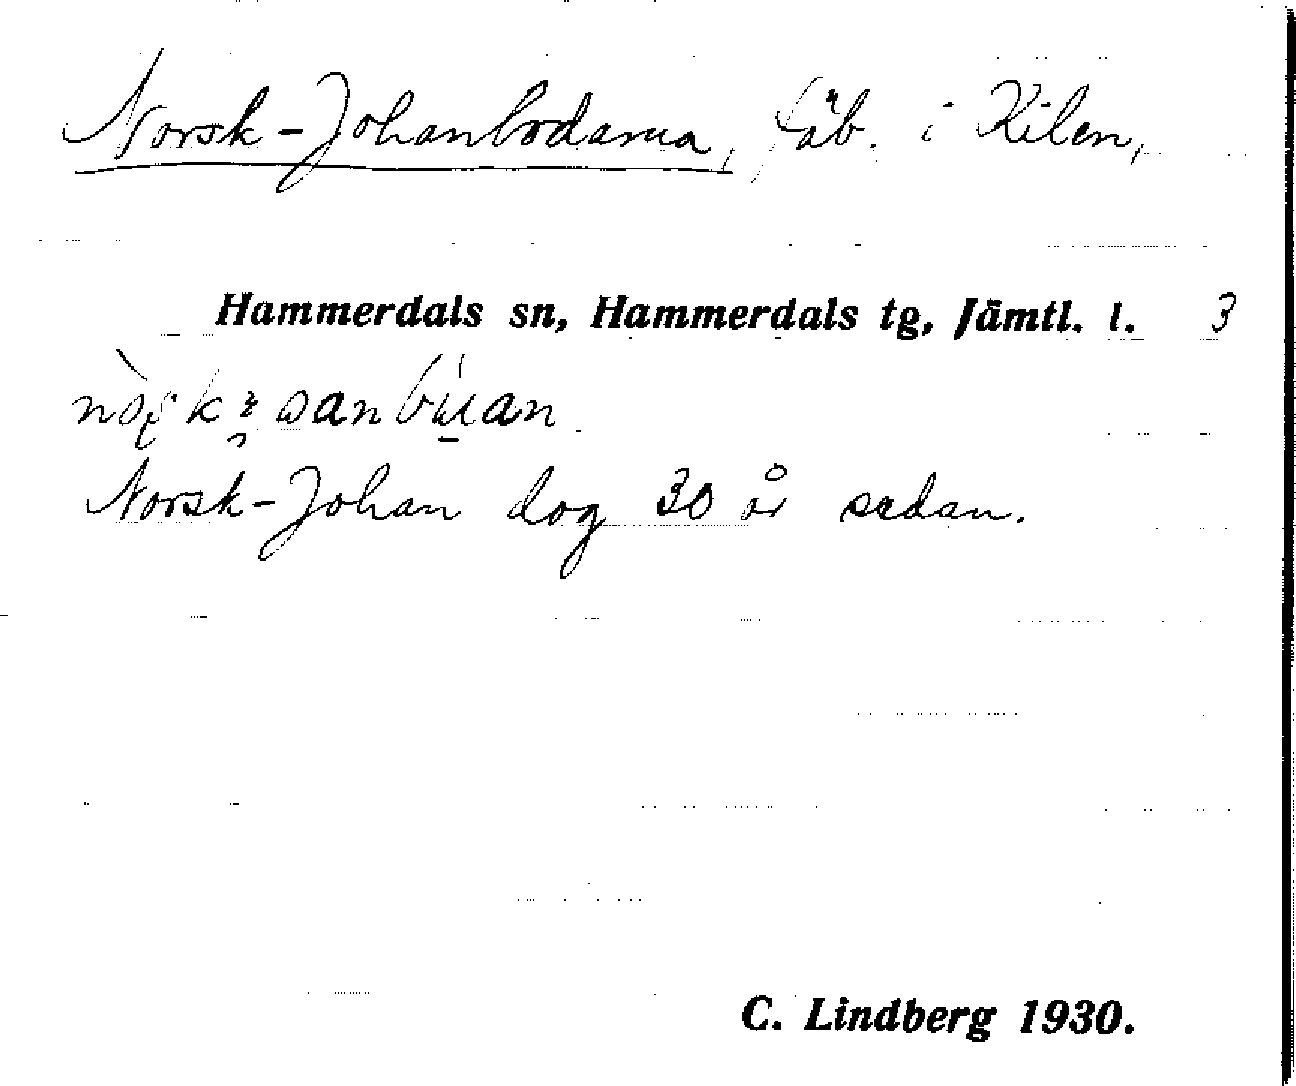 Norsk-Johanbodarna, fäb. i Kilen,
Hammerdals sn, Hammerdals tg, Jämtl. l. 3
Norsk-Johan dog 30 år sedan.
C. Lindberg 1930.